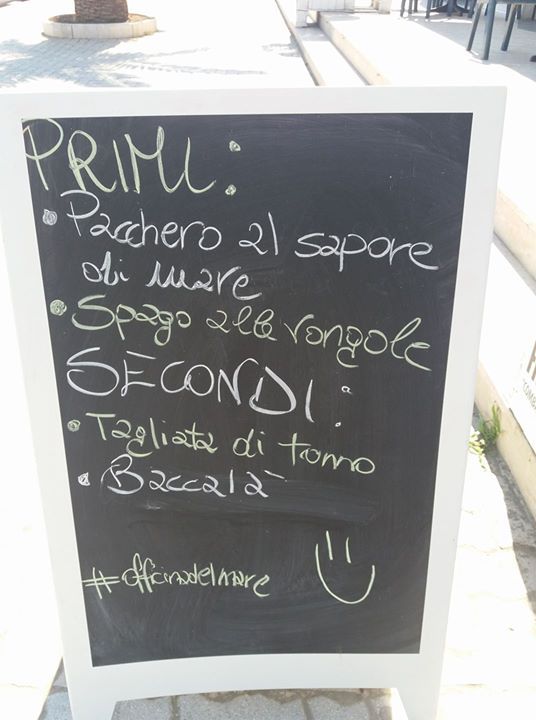 PRIMI:
• Pacchero al sapore
di mare
• Spago alle vongole
SECONDI:
• Tagliata di tonno
• Baccalà
#officinadelmare